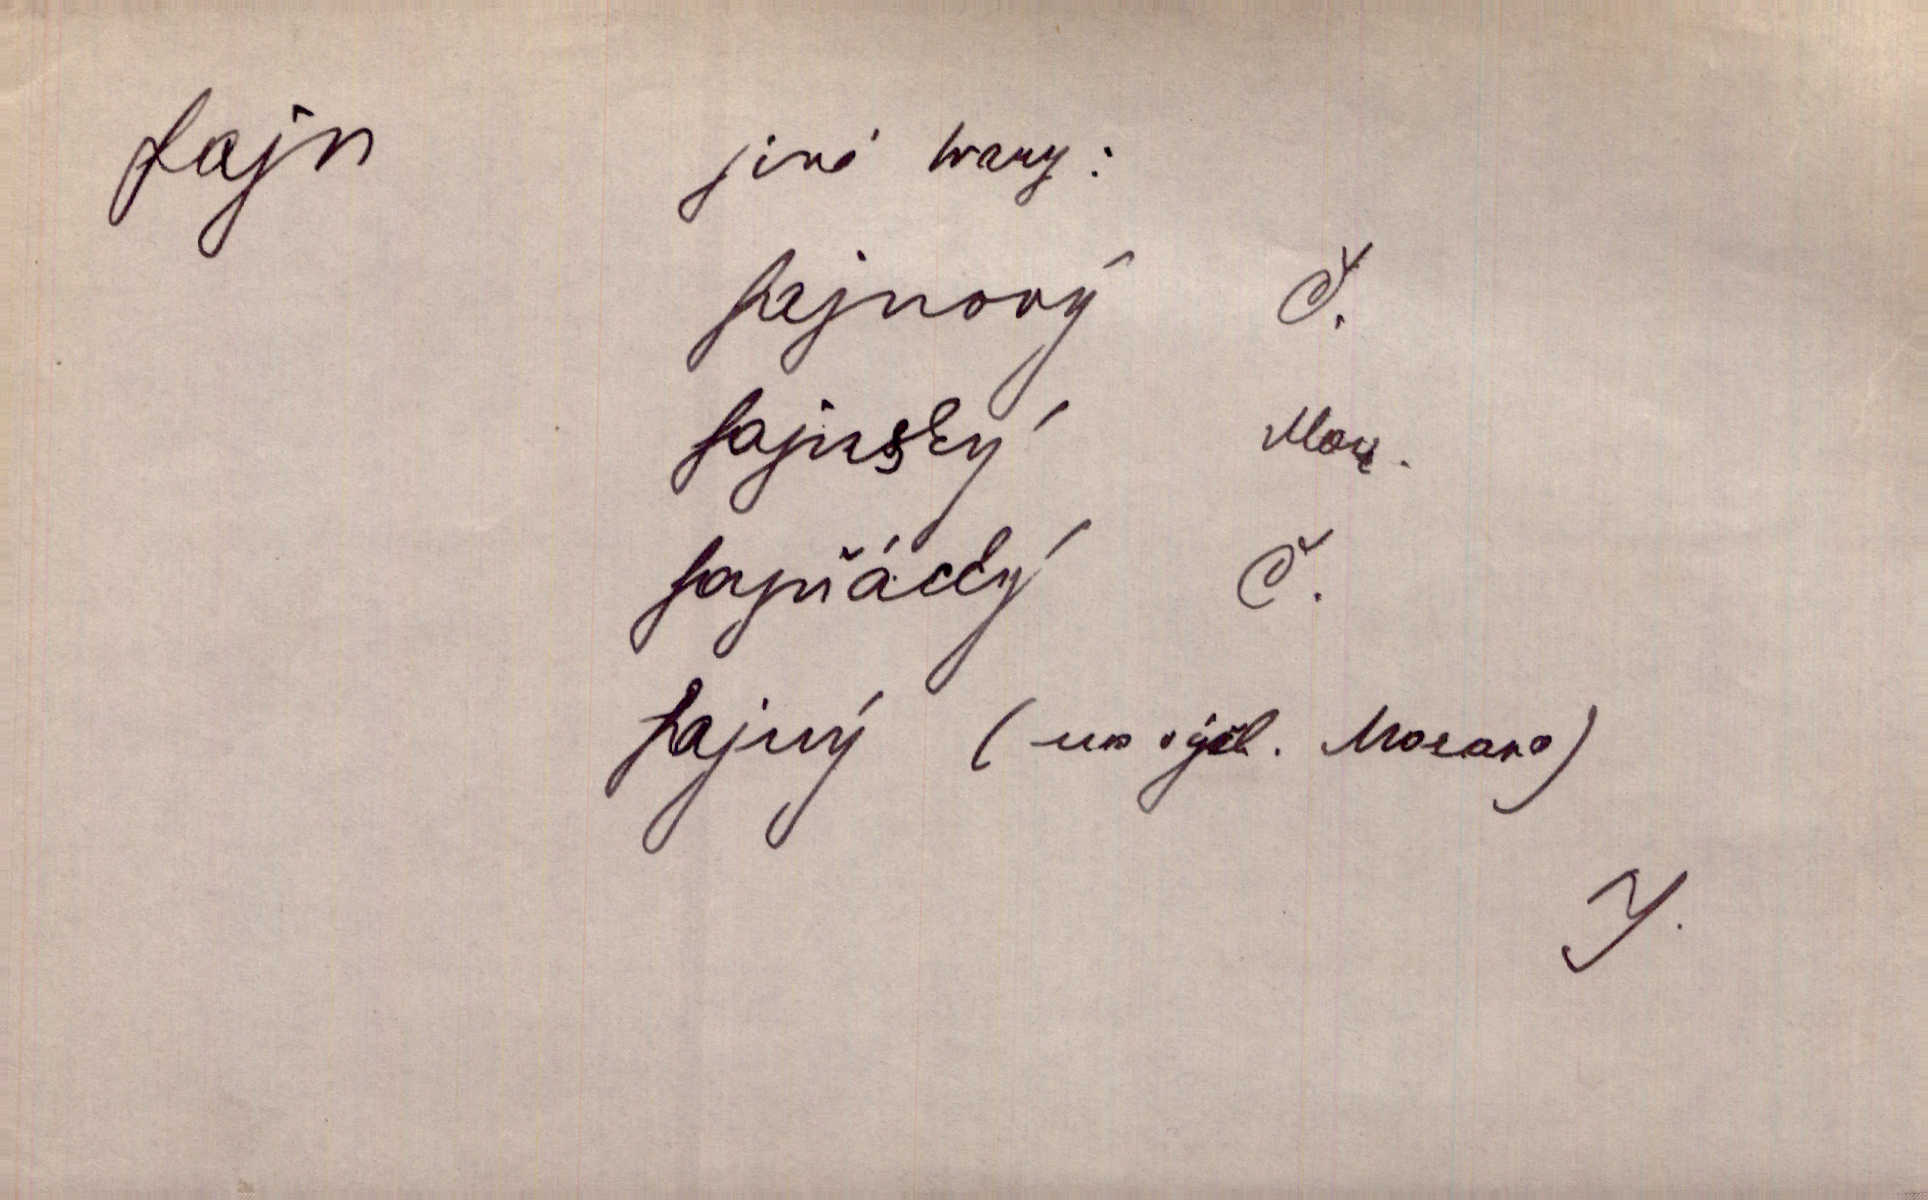 fajn jiné tvary:
fajnový Č.
fajnský Mor.
fajňácký Č.
fajný (Morava)